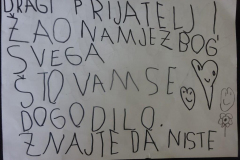 DRAGI PRIJATELJI
ŽAO NAM JE ZBOG
SVEGA
ŠTO VAM SE
DOGODILO.
ZNAJTE DA NISTE